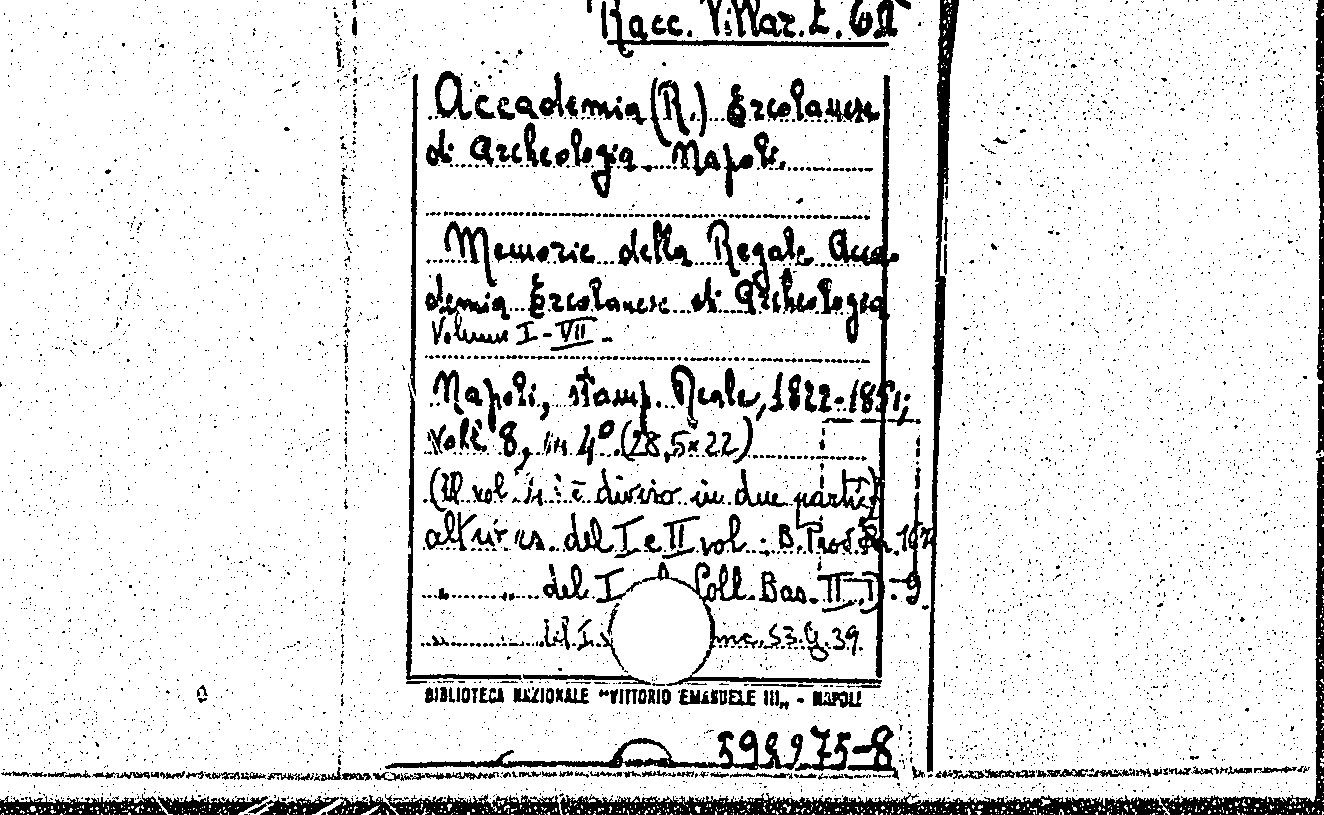 Racc. Villar. E.
Accademia (R.) Ercolanese
di Archeologia. Napoli.
Memorie della Regale Acca-
demia Ercolanese di Archeologia
Volume I-VII -
Napoli, stamp. Reale, 1822-1851;
voll. 8, in 4º. (28,5x22)
(Il vol. è diviso in due parti)
altro es. del I e II vol.: B. Prov.
" " del I Coll. Bas. II. D. 9
" del I 53. G. 39.
BIBLIOTECA NAZIONALE "VITTORIO EMANUELE III„ - NAPOLI
598975-8